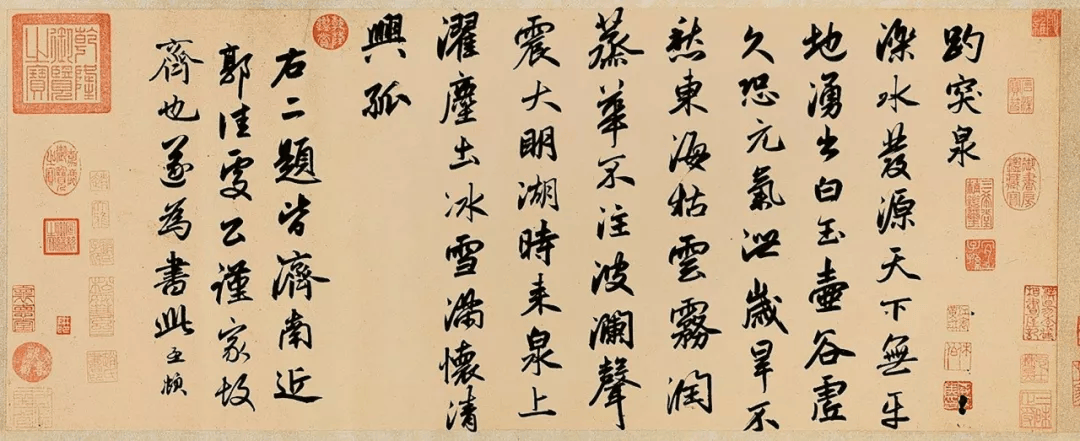 趵突泉
濼水發源天下無平
地湧出白玉壺谷虛
久恐元氣泄歲旱不
愁東海枯雲霧潤
蒸華不注波瀾聲
震大明湖時來泉上
濯塵土冰雪滿懷清
興孤
右二題皆濟南近
郭佳處公謹家故
齊也遂為書此孟頫
乾隆御覽之寶
御書房鑑藏寶
三希堂精鑑璽
宜子孫